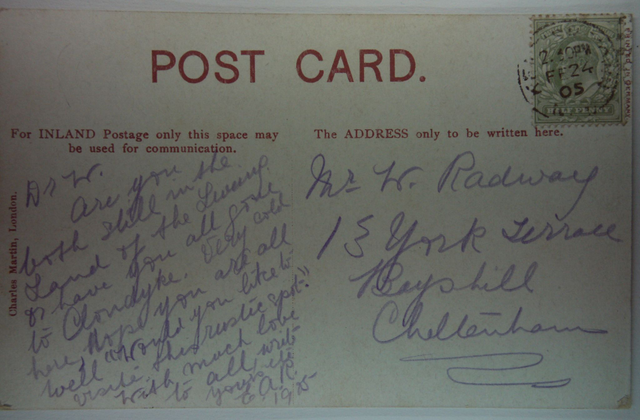 POST CARD.
2.40PM
FE 24
05
HALFPENNY
For INLAND Postage only this space may
be used for communication.
The ADDRESS only to be written here.
Charles Martin, London.
Dr W.
Are you
both still in the
Land of the Living
or have you all gone
to Clondyke. Very cold
here, Hope you are all
well "Would you like to
visit this rustic spot."
With much love
to all, write
yours etc
1905
Mr W. Radway
15 York Terrace
Bayshill
Cheltenham